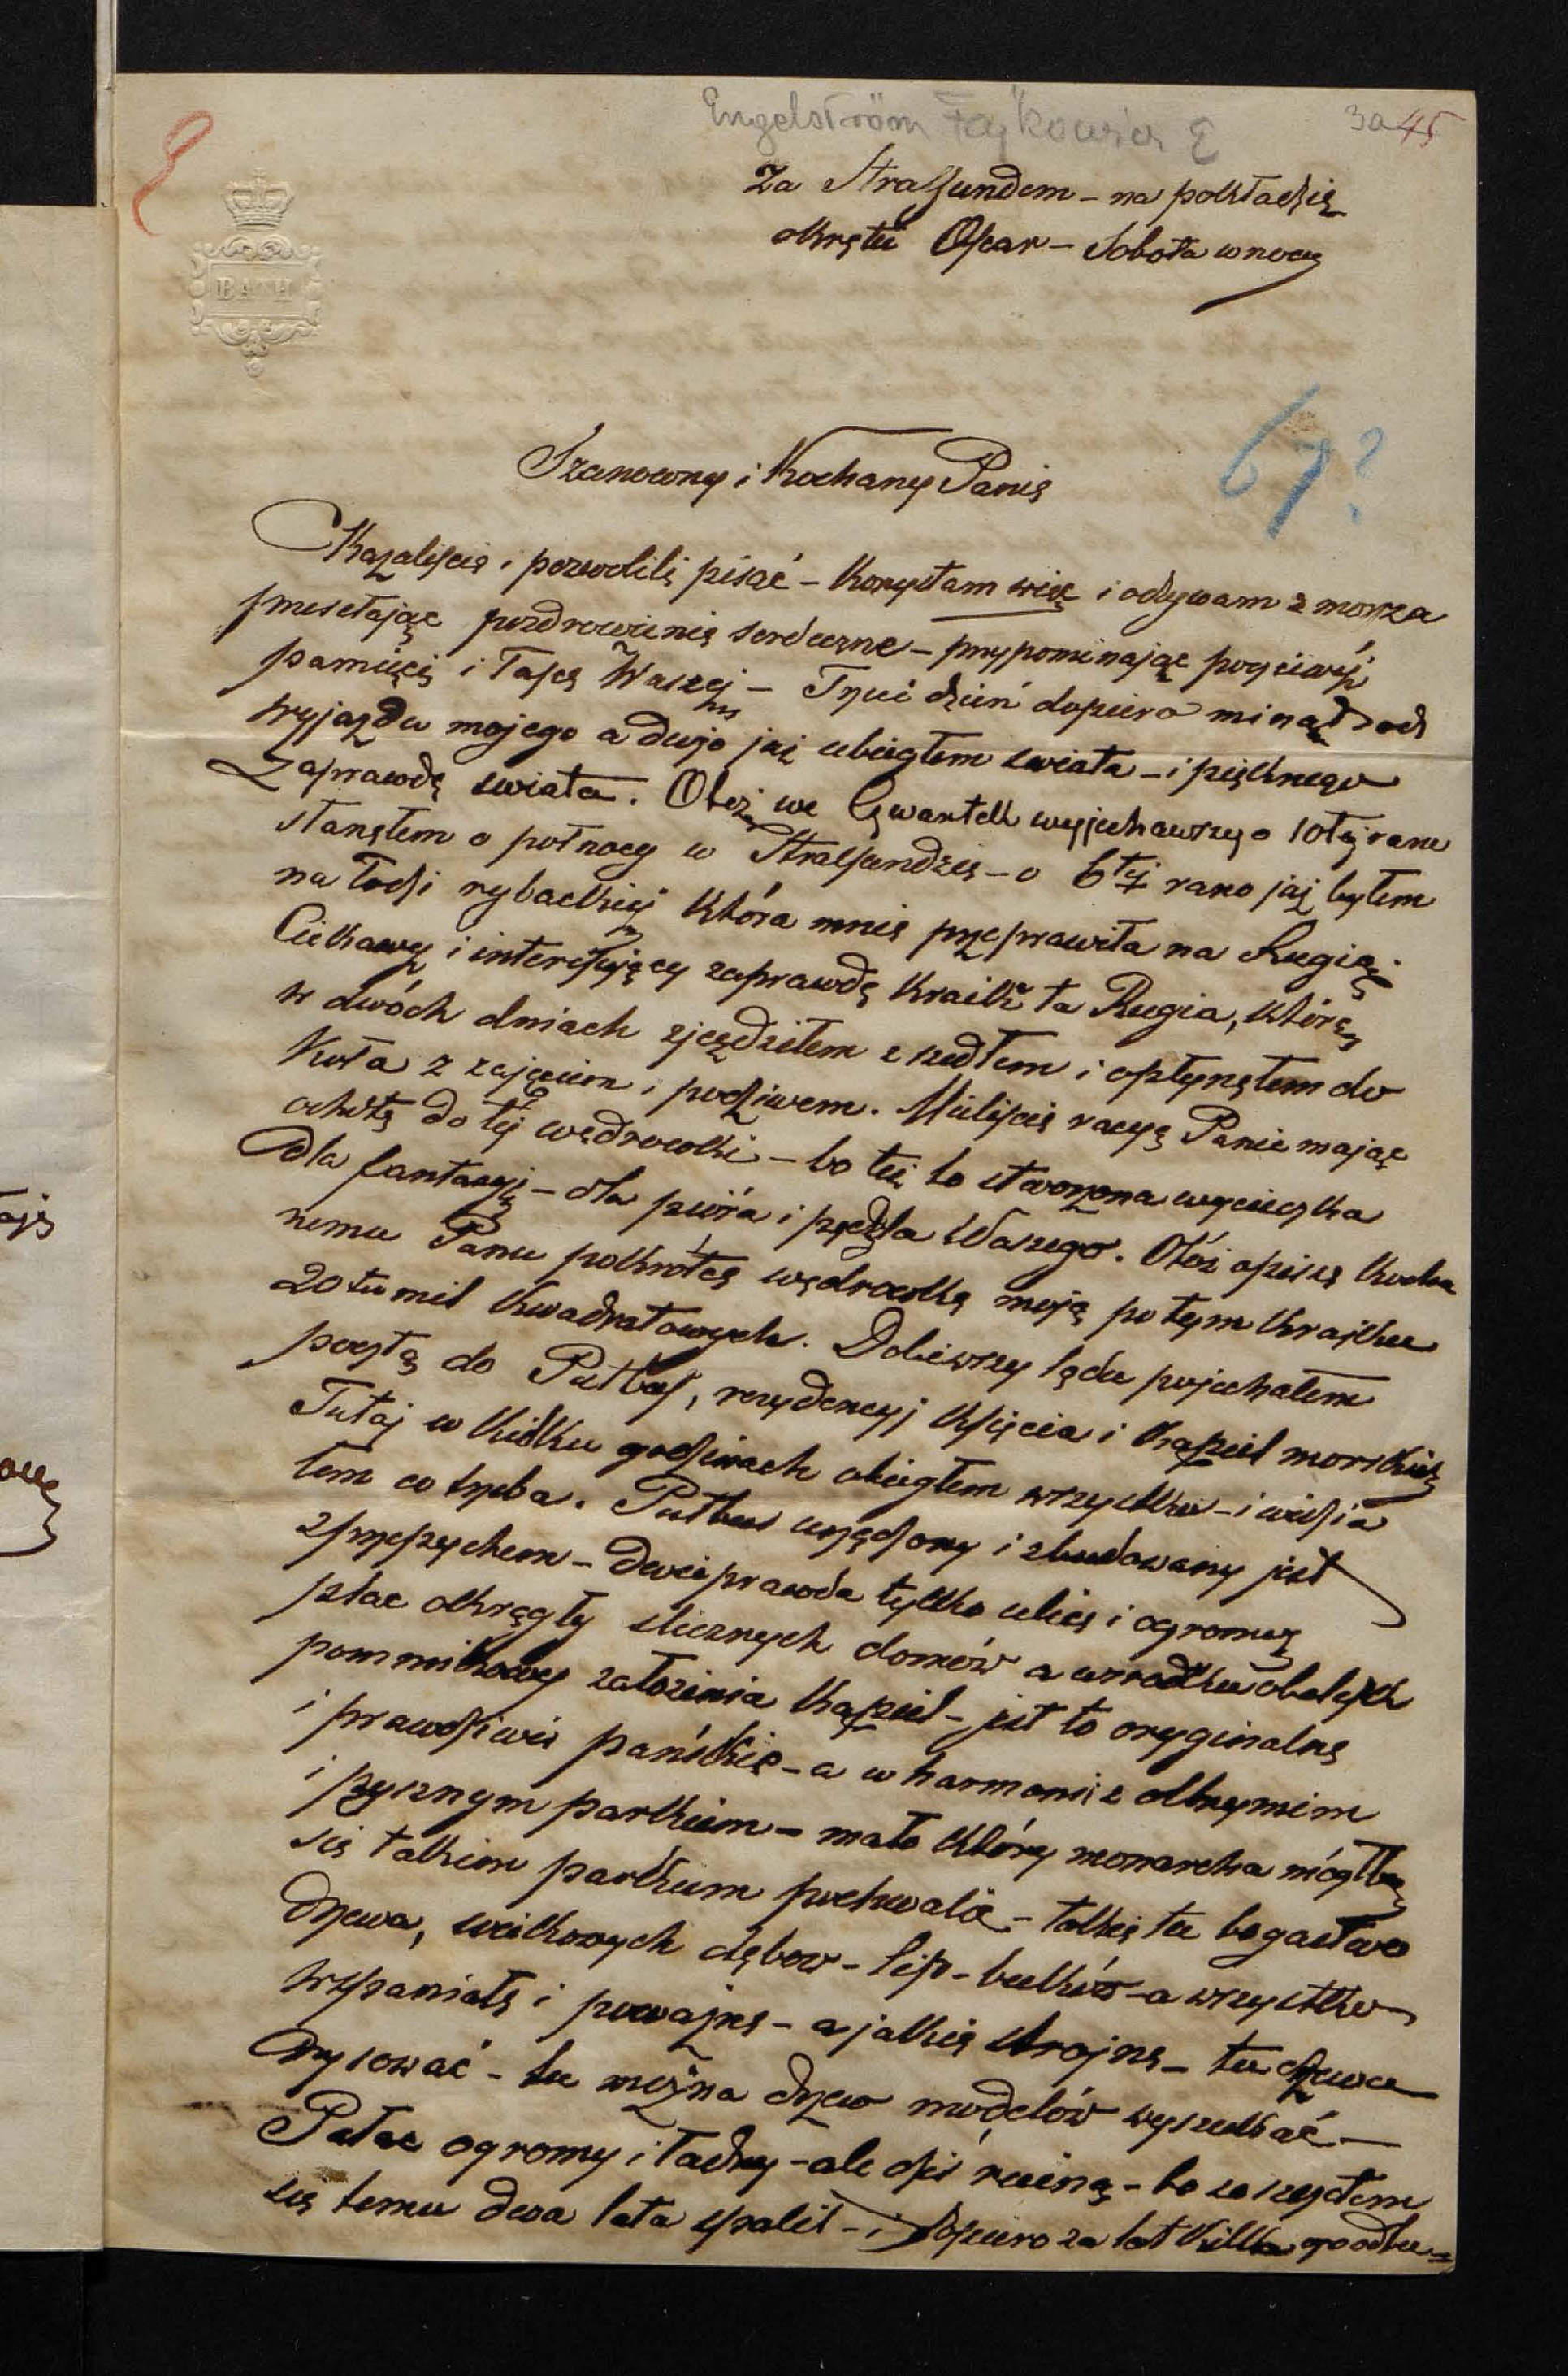 Engelström Fajkowicz E
3a 45
BATH
Za Stralsundem – na pokładzie
okrętu Oscar – Sobota w nocy
67?
Szanowny i Kochany Panie
Kazaliście i pozwolili pisać – Korzystam więc i odzywam z morza
przesełając pozdrowienie serdeczne – przypominając poczciwéj
pamięci i łasce Waszej – Trzeci dzień dopiero minął od
wyjazdu mojego a dużo już ubiegłem swiata – i pięknego
zaprawdę swiata. Otoż we Czwartek wyjechawszy o 10téj rano
stanęłem o połnocy w Stralsundzie – o 6téj rano już byłem
na łodzi rybackiej która mnie przeprawiła na Rugią.
Ciekawy i interesujący zaprawdę kraik ta Rugia, którą
w dwóch dniach zjeździłem zszedłem i opłynęłem do
koła z zajęciem i podziwem. Mieliście racyę Panie mając
ochotę do téj wędrowki – bo też to stworzona wycieczka
dla fantazyj – dla pióra i pędzla Waszego. Otóż opiszę Kocha
nemu Panu pokrótce wędrowkę moją po tym kraiku
20tu mil kwadratowych. Dobiwszy lądu pojechałem
pocztą do Putbus, rezydencyj Księcia i kąpiel morskich
Tutaj w kilku godzinach obiegłem wszystko – i widzia
łem co trzeba. Putbus urządzony i zbudowany jest
z przepychem – dwie prawda tylko ulice i ogromny
plac okrągły slicznych domów a wsrodku obelisk
pomnikowy założenia kąpiel – jest to oryginalne
i prawdziwie pańskie – a w harmonii z olbrzymim
i pysznym parkiem – mało który monarcha mógłby
się takim parkiem pochwalić – takie tu bogactwo
drzewa, wiekowych dębow – lip – buków – a wszystko
wspaniałe i poważne – a jakie strojne – tu drzewa
rysować – tu można drzew modelów wyszukać –
Pałac ogromy i ładny – ale dziś ruiną – bo ze szczętem
się temu dwa lata spalił – i dopiero za lat kilka go odbu=